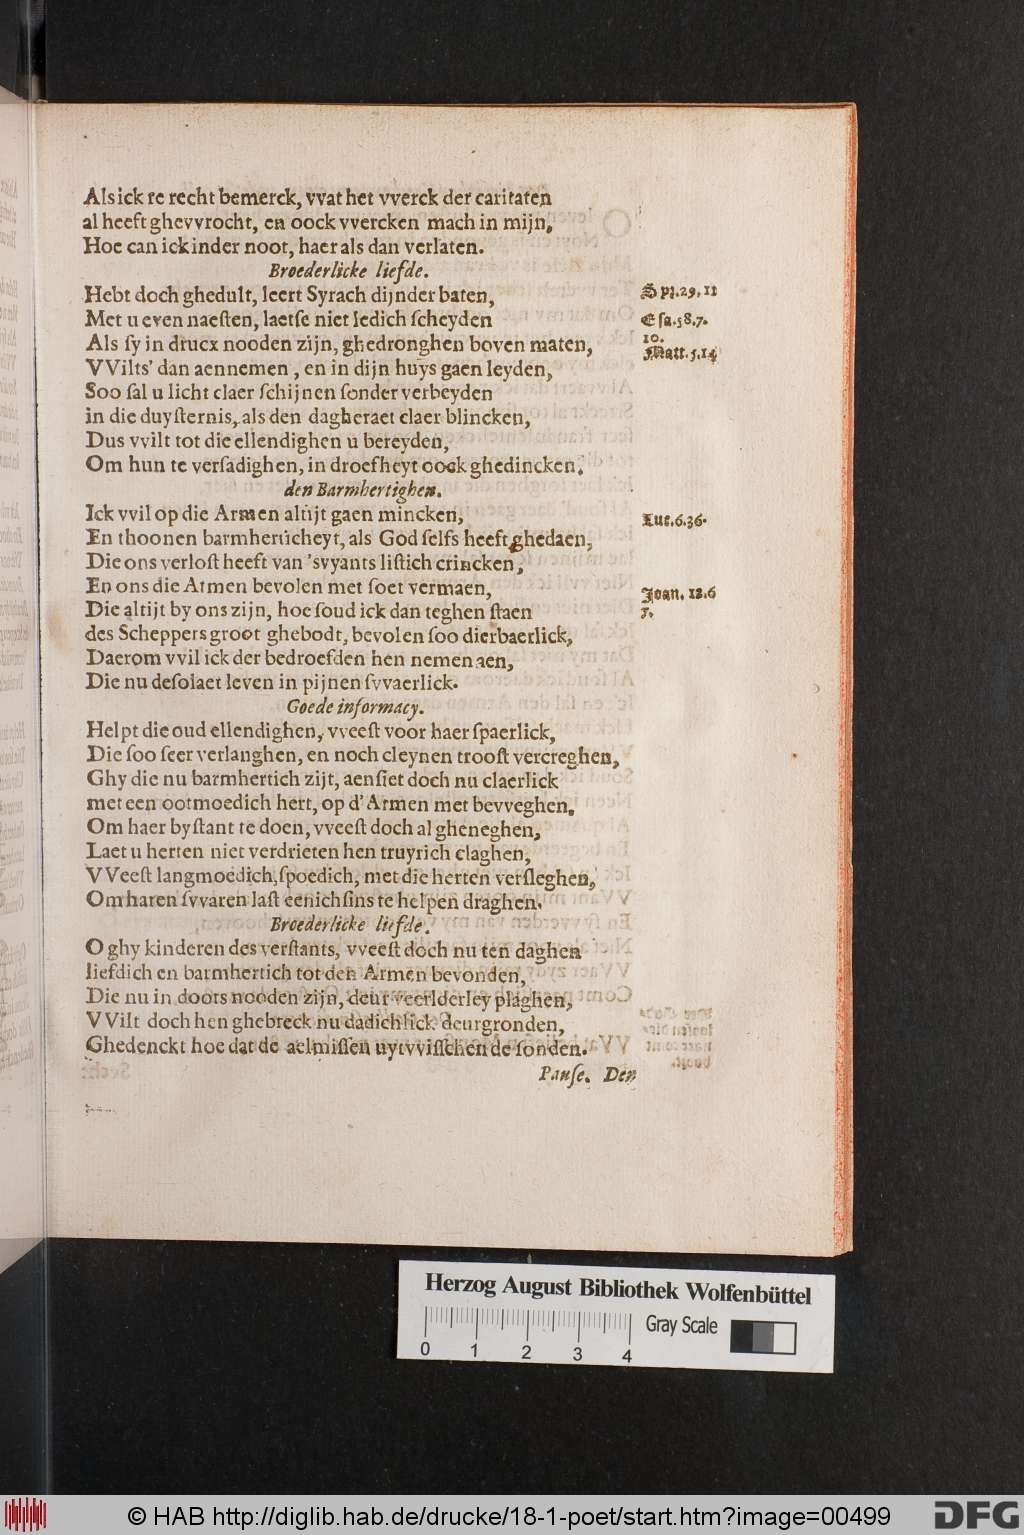 Als ick te recht bemerck, vvat het vverck der caritaten
al heeft ghevvrocht, en oock vvercken mach in mijn,
Hoe can ick inder noot, haer als dan verlaten.
Broederlicke liefde.
Hebt doch ghedult, leert Syrach dijnder baten, Spr.29,11
Met u even naesten, laetſe niet ledich ſcheyden Eſa.58,7.
10.
Als ſy in drucx nooden zijn, ghedronghen boven maten, Matt.5.14
VVilts' dan aennemen, en in dijn huys gaen leyden,
Soo ſal u licht claer ſchijnen ſonder verbeyden
in die duyſternis, als den dagheraet claer blincken,
Dus vvilt tot die ellendighen u bereyden,
Om hun te verſadighen, in droefheyt oock ghedincken.
den Barmhertighen.
Ick vvil op die Armen altijt gaen mincken, Luc.6.36.
En thoonen barmherticheyt, als God ſelfs heeft ghedaen,
Die ons verloſt heeft van 'svyants liſtich crincken,
En ons die Armen bevolen met ſoet vermaen, Joan. 12.6
7.
Die altijt by ons zijn, hoe ſoud ick dan teghen ſtaen
des Scheppers groot ghebodt, bevolen ſoo dierbaerlick,
Daerom vvil ick der bedroefden hen nemen aen,
Die nu deſolaet leven in pijnen ſvvaerlick.
Goede informacy.
Helpt die oud ellendighen, vveeſt voor haer ſpaerlick,
Die ſoo ſeer verlanghen, en noch cleynen trooſt vercreghen,
Ghy die nu barmhertich zijt, aenſiet doch nu claerlick
met een ootmoedich hert, op d'Armen met bevveghen,
Om haer byſtant te doen, vveeſt doch al gheneghen,
Laet u herten niet verdrieten hen truyrich claghen,
VVeeſt langmoedich, ſpoedich, met die herten verſleghen,
Om haren ſvvaren laſt eenichſins te helpen draghen.
Broederlicke liefde.
O ghy kinderen des verſtants, vveeſt doch nu ten daghen
liefdich en barmhertich tot den Armen bevonden,
Die nu in doots nooden zijn, deur veelderley plaghen,
VVilt doch hen ghebreck nu dadichlick deurgronden,
Ghedenckt hoe dat de aelmiſſen uytvviſſchen de ſonden.
Pauſe. Den
Herzog August Bibliothek Wolfenbüttel
Gray Scale
0 1 2 3 4
© HAB http://diglib.hab.de/drucke/18-1-poet/start.htm?image=00499
DFG